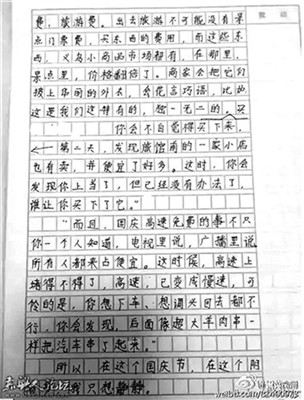 费，旅游费。出去旅游不可能没有景
点门票费，买东西的费用，而这些东
西，义乌小商品市场都有，在那里，
景点里，价格翻倍了。商家会把它们
披上华丽的外衣，会花言巧语，比如
这是我们这特有的，独一无二的，买
你会不自觉得买下来，
第二天，发现旅馆前的一家小店
也有卖，并便宜了好多。这时，你会
发现你上当了，但已经没有办法了，
谁让你买下了它。”
“而且，国庆高速免费的事不只
你一个人知道，电视里说，广播里说
所有人都来占便宜。这时候，高速上
堵得不得了，高速，已变成慢速，可
怜的是，你想下车、想调头回去都不
行，你会发现，后面像超大羊肉串一
样把汽车串了起来。”
所以，在这个国庆节，在这个阴
我只想静静。